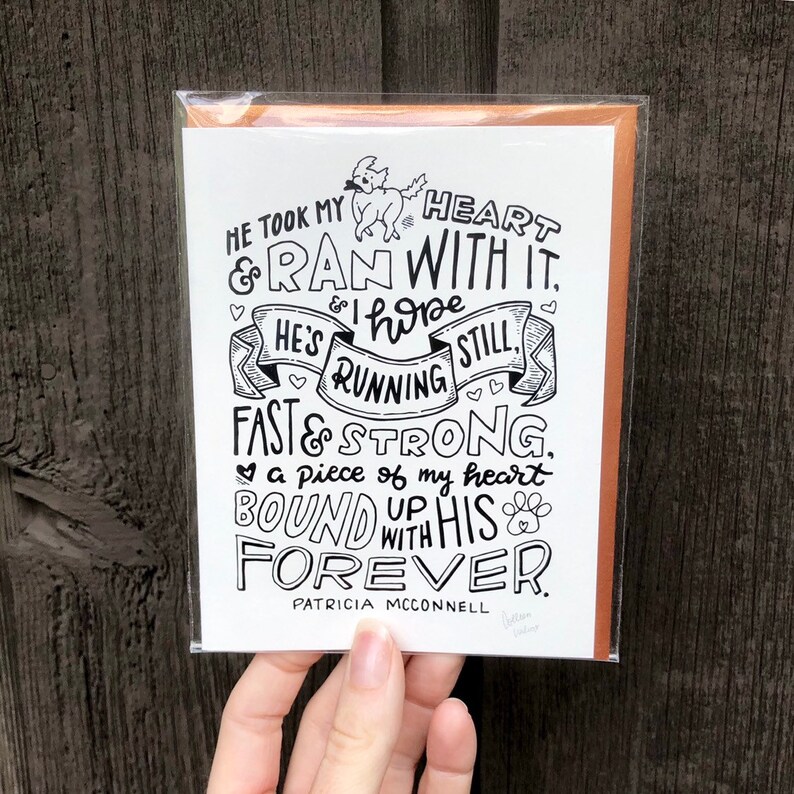 HE TOOK MY HEART
& RAN WITH IT,
& I hope
HE'S RUNNING STILL,
FAST & STRONG,
a piece of my heart
BOUND UP WITH HIS
FOREVER.
PATRICIA MCCONNELL